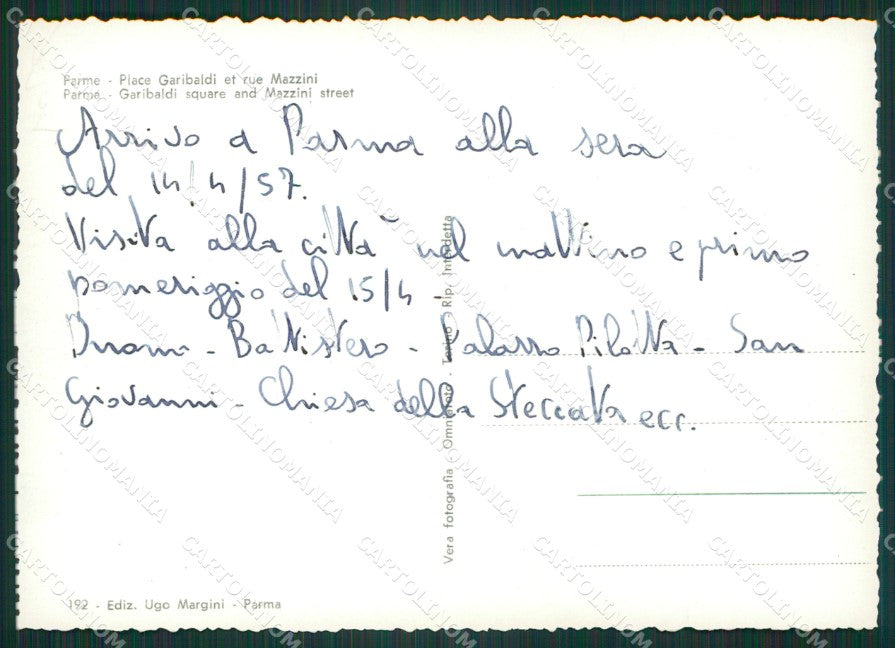 Parme - Place Garibaldi et rue Mazzini
Parma - Garibaldi square and Mazzini street
Arrivo a Parma alla sera
del 14/4/57.
Visita alla città nel mattino e primo
pomeriggio del 15/4 -
Duomo - Battistero - Palazzo Pilotta - San
Giovanni - Chiesa della Steccata ecc.
Vera fotografia Omniafoto - Torino - Rip. Interdetta
192 - Ediz. Ugo Margini - Parma
CARTOLINOMANIA